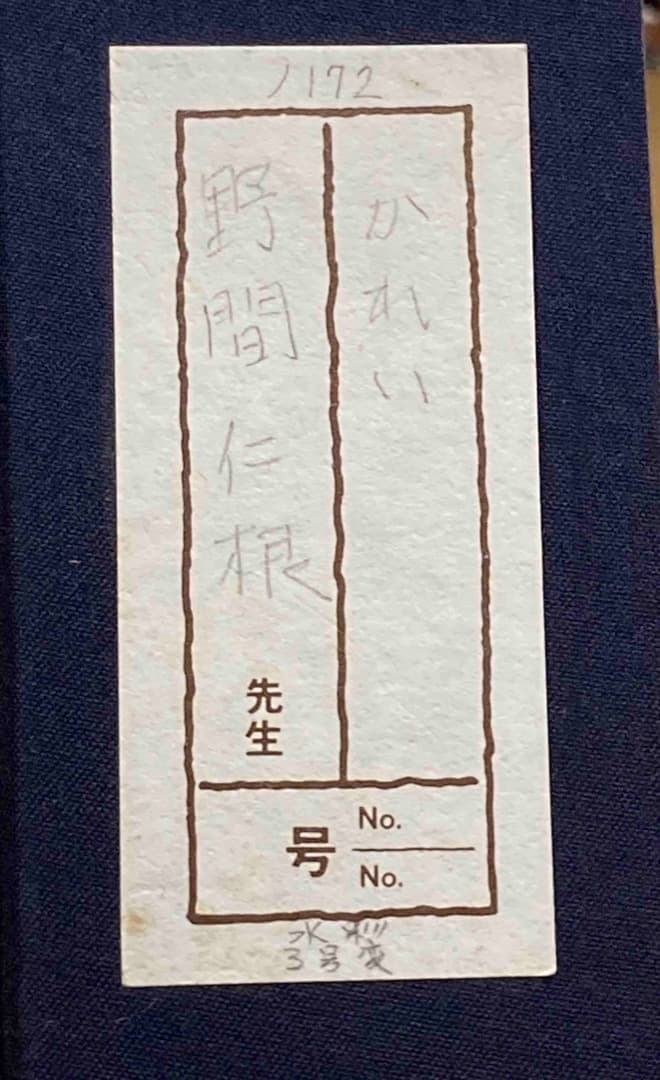 ノ172
かれい
野間仁根
先生
号
No.
No.
水彩
3号変